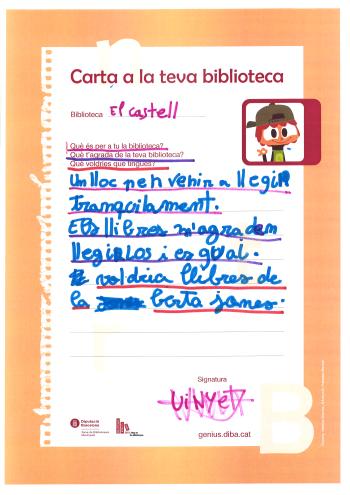 Carta a la teva biblioteca
Biblioteca El castell
Què és per a tu la biblioteca?
Què t'agrada de la teva biblioteca?
Què voldries que tingués?
Un lloc per venir a llegir
tranquilament.
Els llibres m'agraden
llegirlos i es gual.
voldria llibres de
la berta james.
Signatura
Diputació
Barcelona
genius.diba.cat